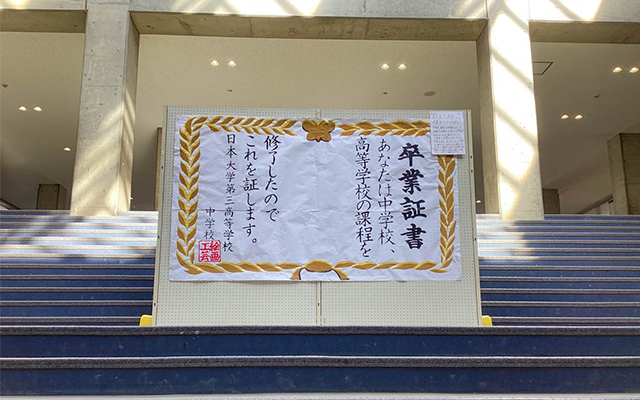 卒業証書
あなたは中学校、
高等学校の課程を
修了したので
これを証します。
日本大学第三高等学校
中学校
絵画
工芸